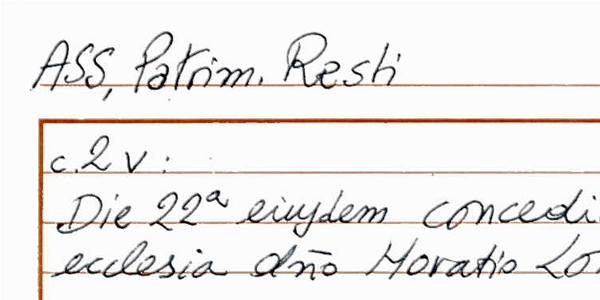 ASS, Patrim. Resti
c. 2 v :
Die 22ª eiusdem concedi
ecclesia dño Horatio Lo